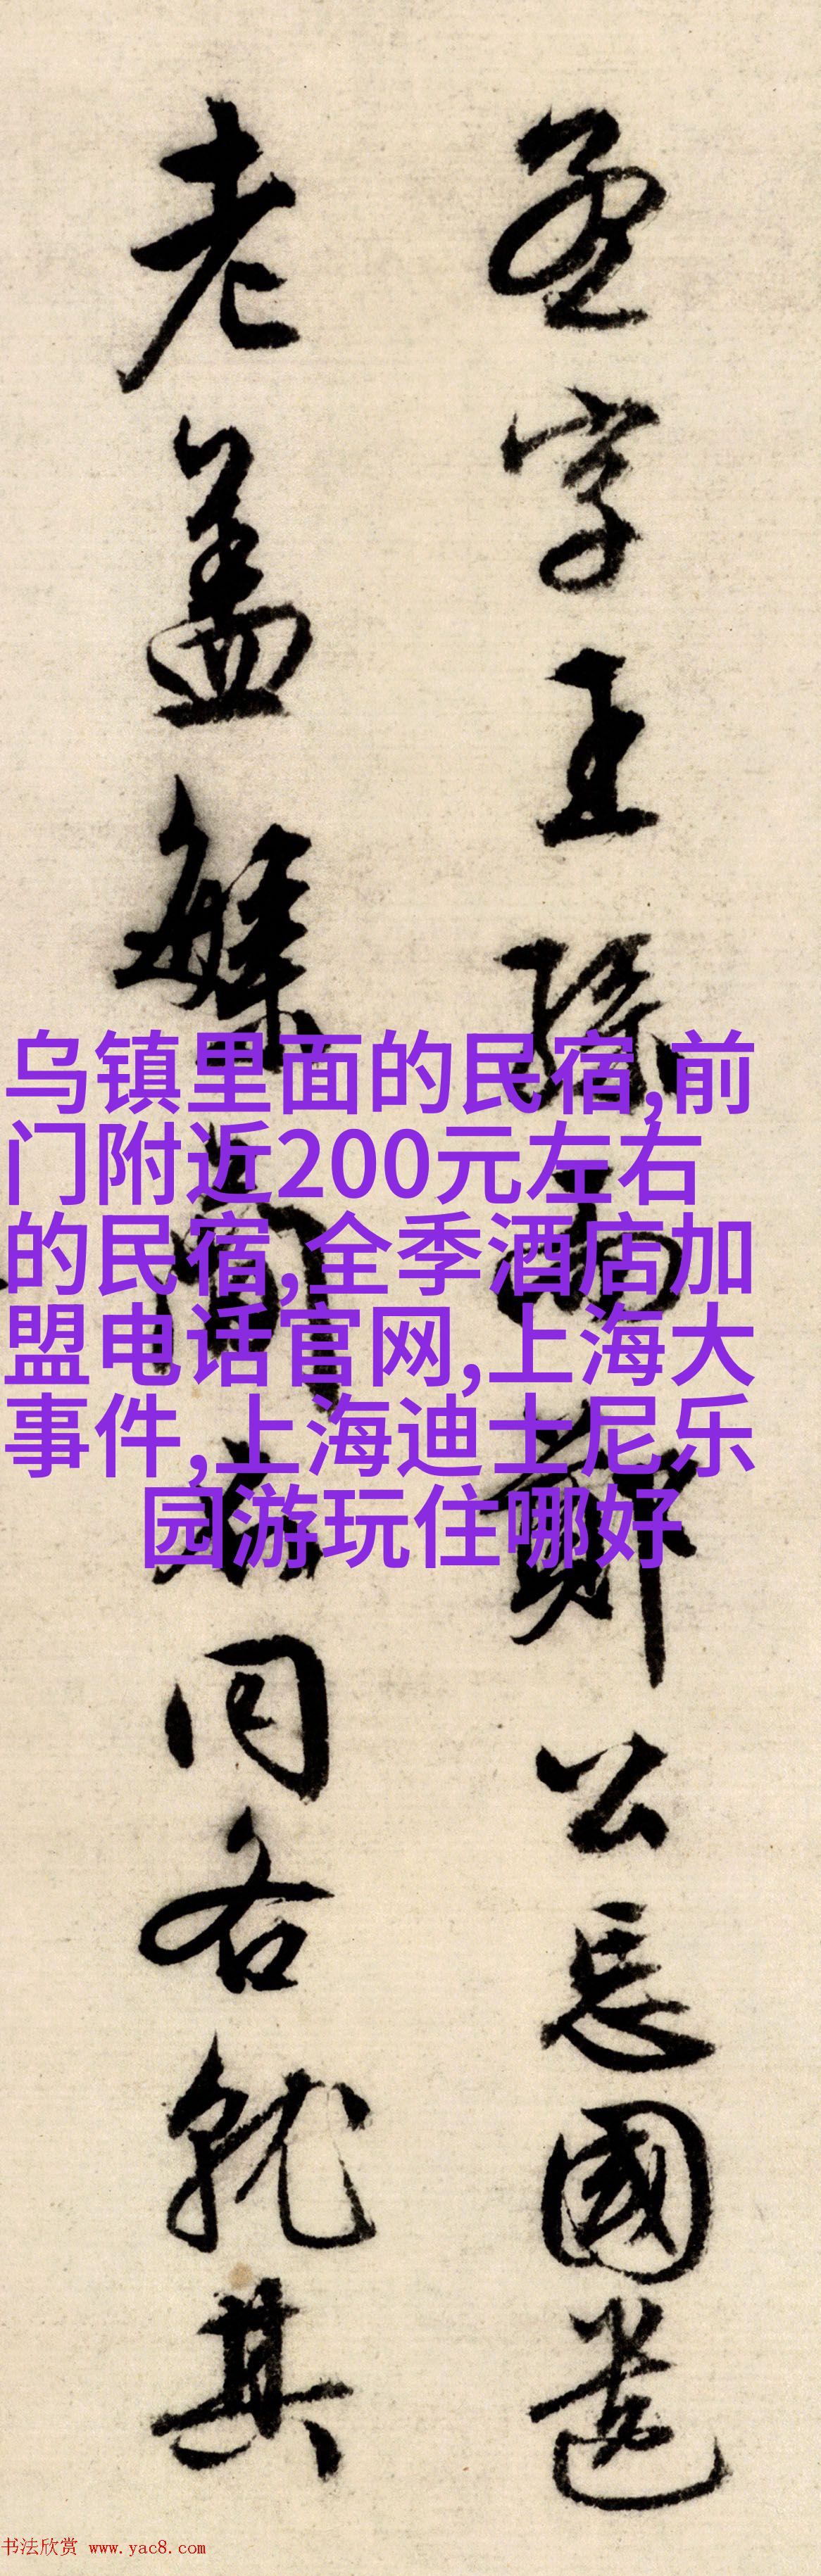 孟字王孫而鄭公忘國遺
老盖繇
同各就其
乌镇里面的民宿,前
门附近200元左右
的民宿,全季酒店加
盟电话官网,上海大
事件,上海迪士尼乐
园游玩住哪好
书法欣赏 www.yac8.com